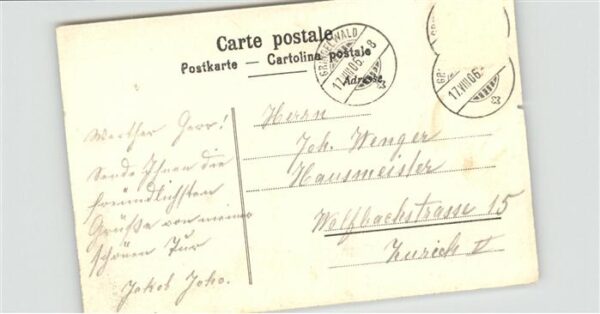 Carte postale
Postkarte — Cartolina postale
Adresse
GRINDELWALD
17.VIII.06. 8
17.VIII.06.
Werther Herr!
Sende Ihnen die
freundlichsten
Grüße von meiner
schönen Tur
Jakob Joho.
Herrn
Joh. Wenger
Hausmeister
Wolfbachstrasse 15
Zürich V